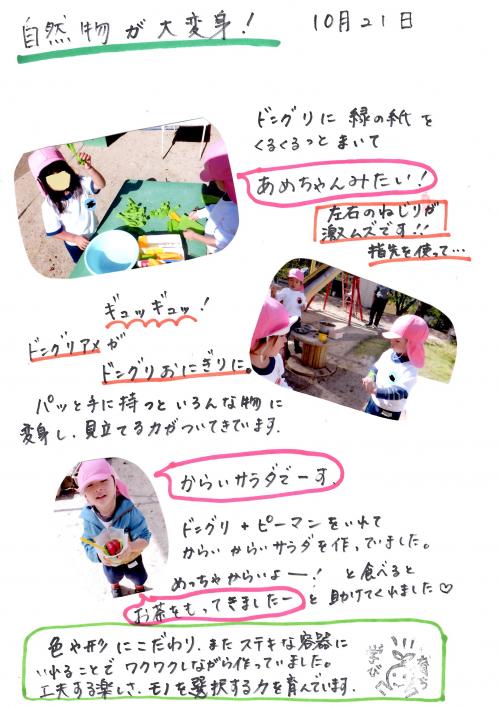 自然物が大変身！
10月21日
ドングリに 緑の紙を
くるくるっとまいて
あめちゃんみたい！
左右のねじりが
激ムズです!!
指先を使って…
ギュッギュッ！
ドングリアメが
ドングリおにぎりに。
パッと手に持つといろんな物に
変身し、見立てる力がついてきています。
からいサラダでーす。
ドングリ + ピーマンをいれて
からい からいサラダを作っていました。
めっちゃからいよー！ と食べると
お茶をもってきましたー と 助けてくれました♡
色や形にこだわり、またステキな容器に
いれることで ワクワクしながら作っていました。
工夫する楽しさ、モノを選択する力を育んでいます。